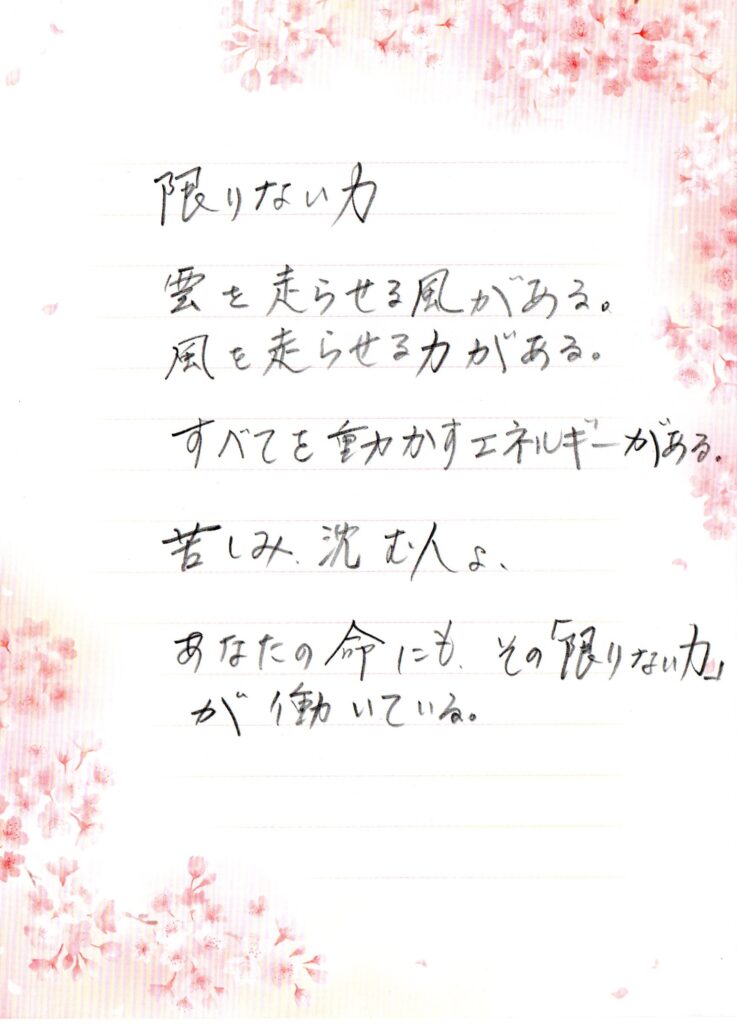 限りない力
雲を走らせる風がある。
風を走らせる力がある。
すべてを動かすエネルギーがある。
苦しみ、沈む人よ、
あなたの命にも、その「限りない力」
が働いている。